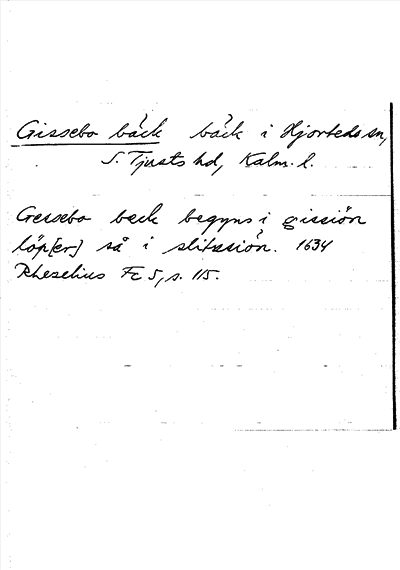 Gissebo bäck bäck i Hjorteds sn,
S. Tjusts hd, Kalm. l.
Gersebo beck begyns i gissiön
löp[er] så i slitesiön. 1634
Rhezelius Fc 5, s. 115.